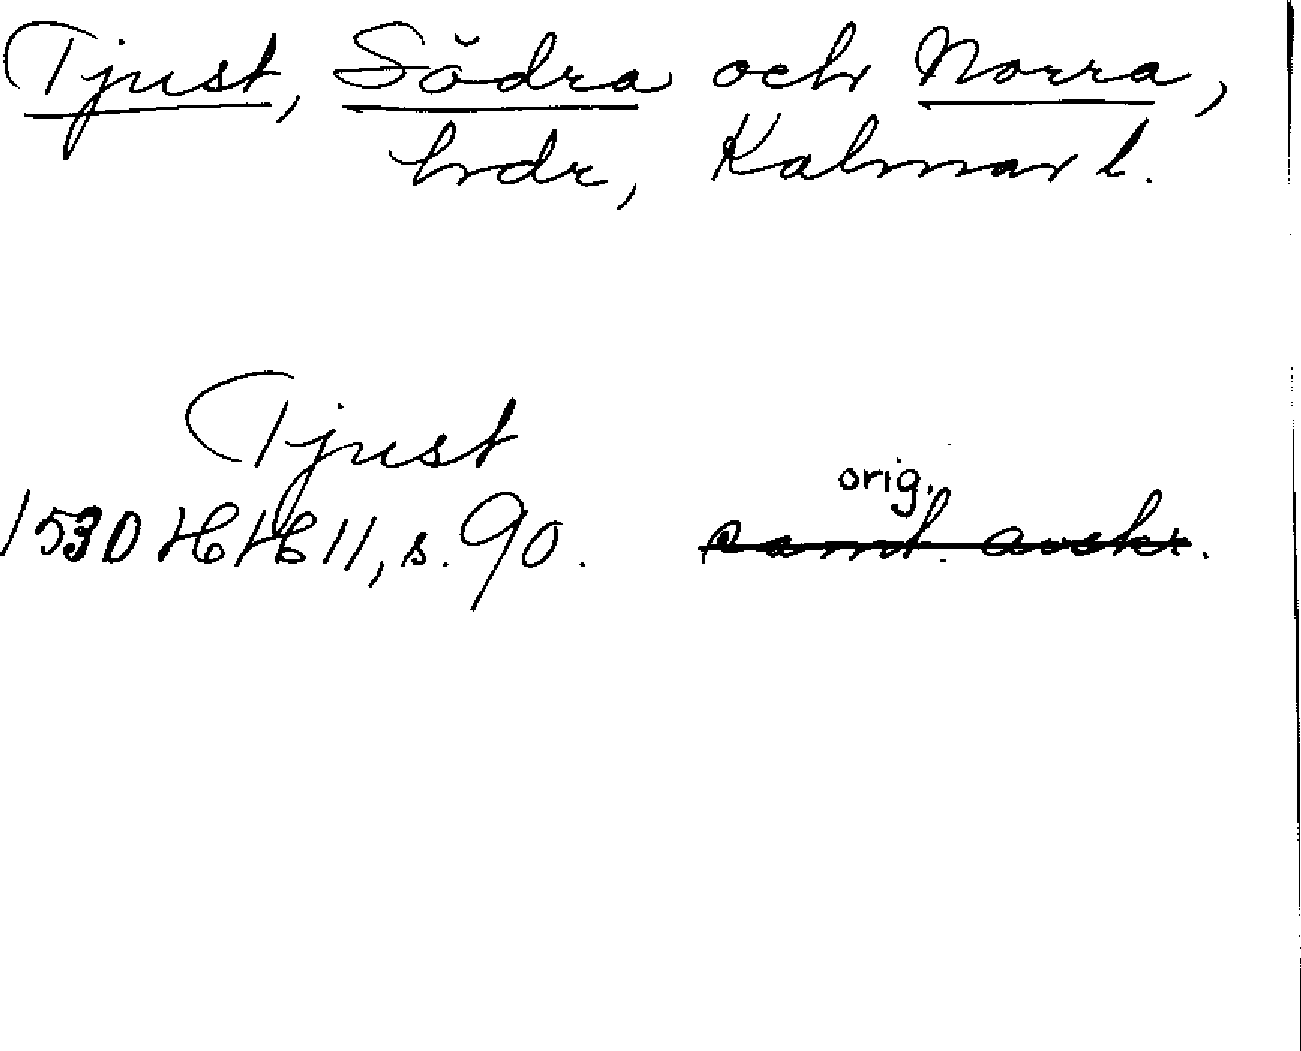 Tjust, Södra och Norra,
hrdr, Kalmar l.
Tjust
orig.
1530 HH 11, s. 90. samt. avskr.